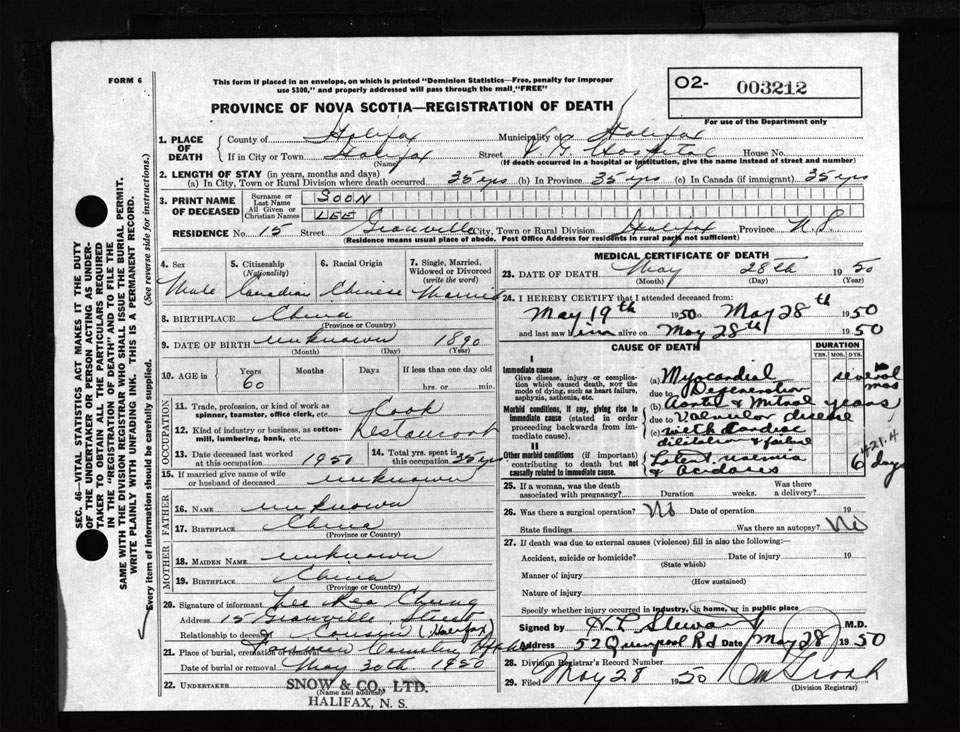 FORM 6
This form if placed in an envelope, on which is printed "Dominion Statistics—Free, penalty for improper
use $300," and properly addressed will pass through the mail "FREE"
PROVINCE OF NOVA SCOTIA—REGISTRATION OF DEATH
O2- 003212
For use of the Department only
SEC. 46—VITAL STATISTICS ACT MAKES IT THE DUTY
OF THE UNDERTAKER OR PERSON ACTING AS UNDER-
TAKER TO OBTAIN ALL THE PARTICULARS REQUIRED
IN THE "REGISTRATION OF DEATH" AND TO FILE THE
SAME WITH THE DIVISION REGISTRAR WHO SHALL ISSUE THE BURIAL PERMIT.
WRITE PLAINLY WITH UNFADING INK. THIS IS A PERMANENT RECORD.
Every item of information should be carefully supplied. (See reverse side for instructions.)
1. PLACE OF DEATH County of Halifax Municipality of Halifax
If in City or Town Halifax Street V. G. Hospital House No.
(Name) (If death occurred in a hospital or institution, give the name instead of street and number)
2. LENGTH OF STAY (in years, months and days)
(a) In City, Town or Rural Division where death occurred 35 yrs (b) In Province 35 yrs (c) In Canada (if immigrant) 35 yrs
3. PRINT NAME OF DECEASED Surname or Last Name SOON
All Given or Christian Names LEE
RESIDENCE No. 15 Street Granville City, Town or Rural Division Halifax Province N.S.
(Residence means usual place of abode. Post Office Address for residents in rural parts not sufficient)
4. Sex Male
5. Citizenship (Nationality) Canadian
6. Racial Origin Chinese
7. Single, Married, Widowed or Divorced (write the word) Married
8. BIRTHPLACE China
(Province or Country)
9. DATE OF BIRTH unknown 1890
(Month) (Day) (Year)
10. AGE in Years Months Days If less than one day old
60 hrs. or min.
OCCUPATION
11. Trade, profession, or kind of work as spinner, teamster, office clerk, etc. Cook
12. Kind of industry or business, as cotton-mill, lumbering, bank, etc. Restaurant
13. Date deceased last worked at this occupation 1950 14. Total yrs. spent in this occupation 35 yrs
15. If married give name of wife or husband of deceased unknown
FATHER
16. Name unknown
17. Birthplace China
(Province or Country)
MOTHER
18. Maiden Name unknown
19. Birthplace China
(Province or Country)
20. Signature of informant Lee Chung
Address 15 Granville Street
Relationship to deceased Cousin (Halifax)
21. Place of burial, cremation or removal Cemetery
Date of burial or removal May 30th 1950
22. Undertaker SNOW & CO., LTD.
(Name and address)
HALIFAX, N. S.
MEDICAL CERTIFICATE OF DEATH
23. DATE OF DEATH May 28th 1950
(Month) (Day) (Year)
24. I HEREBY CERTIFY that I attended deceased from:
May 19th 1950 to May 28th 1950
and last saw him alive on May 28th 1950
CAUSE OF DEATH DURATION
YRS. MOS. DYS.
I
Immediate cause
Give disease, injury or complication which caused death, not the mode of dying, such as heart failure, asphyxia, asthenia, etc.
(a) Myocardial several mos
due to Degeneration
Morbid conditions, if any, giving rise to immediate cause (stated in order proceeding backwards from immediate cause).
(b) Aortic & Mitral years
due to Valvular disease
(c) with Cardiac
dilitation & failure 421.4
II
Other morbid conditions (if important) contributing to death but not causally related to immediate cause.
Latent uremia
& Acidoses 6 days
25. If a woman, was the death associated with pregnancy? Duration weeks. Was there a delivery?
26. Was there a surgical operation? No Date of operation 19
State findings Was there an autopsy? No
27. If death was due to external causes (violence) fill in also the following:
Accident, suicide or homicide? Date of injury 19
(State which)
Manner of injury
(How sustained)
Nature of injury
Specify whether injury occurred in industry, in home, or in public place
Signed by H L Stewart M.D.
Address 52 Quinpool Rd Date May 28 1950
28. Division Registrar's Record Number
29. Filed May 28 1950
(Division Registrar)